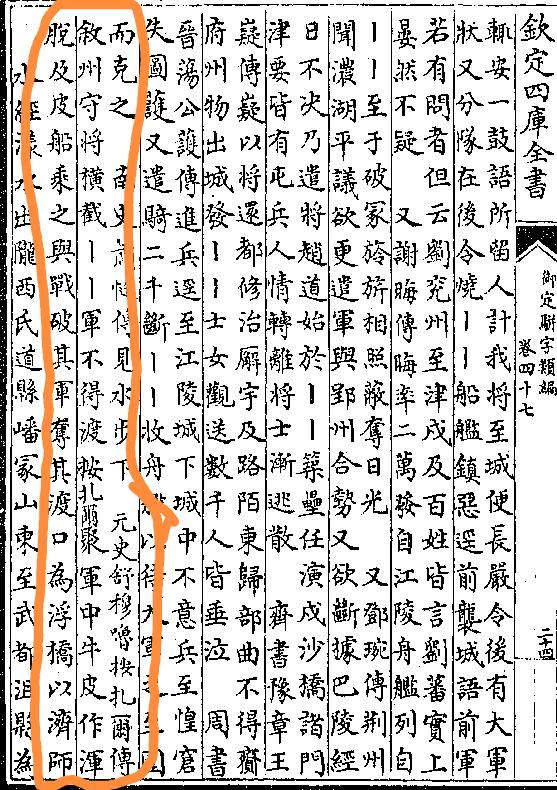 欽定四庫全書
御定駢字類編
卷四十七
二十四
輒安一鼓語所留人計我將至城便長嚴令後有大軍
狀又分隊在後令燒丨丨船艦鎮惡逕前襲城語前軍
若有問者但云劉兖州至津戍及百姓皆言劉蕃實上
晏然不疑 又謝晦傳晦率二萬發自江陵舟艦列自
丨丨至于破冢旍旂相照蔽奪日光 又鄧琬傳荆州
聞濃湖平議欲更遣軍與郢州合勢又欲斷據巴陵經
日不决乃遣將趙道始於丨丨築壘任演戍沙橋諸門
津要皆有屯兵人情轉離將士漸逃散 齊書豫章王
嶷傳嶷以將還都修治廨宇及路陌東歸部曲不得齎
府州物出城發丨丨士女觀送數千人皆垂泣 周書
晉蕩公護傳進兵逕至江陵城下城中不意兵至惶窘
失圖護又遣騎二千斷丨丨收舟以待大軍之至圍
而克之 南史蕭 傳見水步下 元史舒穆嚕按扎爾傳
敘州守將橫截丨丨軍不得渡按扎爾聚軍中牛皮作渾
脫及皮船乘之與戰破其軍奪其渡口為浮橋以濟師
水經漾水出隴西氐道縣嶓冢山東至武都沮縣為